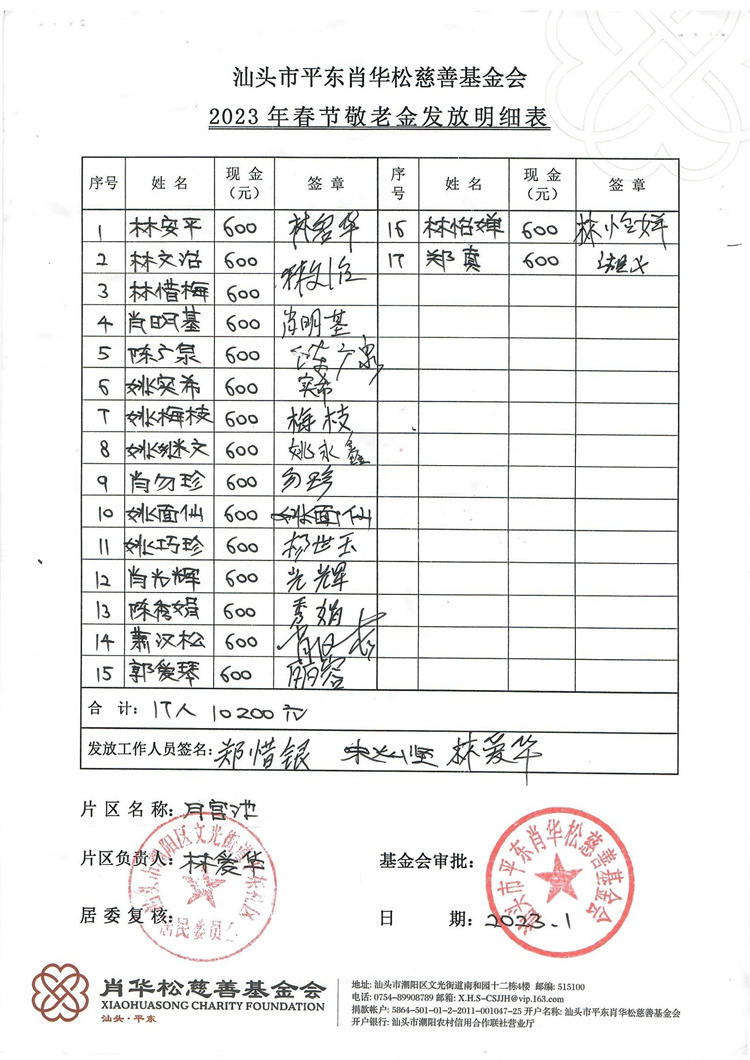 汕头市平东肖华松慈善基金会
2023年春节敬老金发放明细表
序号 姓名 现金（元） 签章 序号 姓名 现金（元） 签章
1 林安平 600 林爱华 16 林怡婵 600 林怡婵
2 林文治 600 林文治 17 郑真 600
3 林惜梅 600
4 肖明基 600 肖明基
5 陈广泉 600 陈广泉
6 姚实希 600 实希
7 姚梅枝 600 梅枝
8 姚继文 600 姚永鑫
9 肖勿珍 600 勿珍
10 姚面仙 600 姚面仙
11 姚巧珍 600 杨世玉
12 肖光辉 600 光辉
13 陈秀娟 600 秀娟
14 萧汉松 600
15 郭爱琴 600 丽容
合计：17人 10200元
发放工作人员签名：郑惜银 林爱华
片区名称：月宫池
片区负责人：林爱华
基金会审批：
居委复核：
日期：2023.1
汕头市潮阳区文光街道平东社区
居民委员会
汕头市平东肖华松慈善基金会
肖华松慈善基金会
XIAOHUASONG CHARITY FOUNDATION
汕头·平东
地址: 汕头市潮阳区文光街道南和园十二栋4楼 邮编: 515100
电话: 0754-89908789 邮箱: X.H.S-CSJJH@vip.163.com
捐款帐户: 5864-501-01-2-2011-001047-25 开户名称: 汕头市平东肖华松慈善基金会
开户银行: 汕头市潮阳农村信用合作联社营业厅